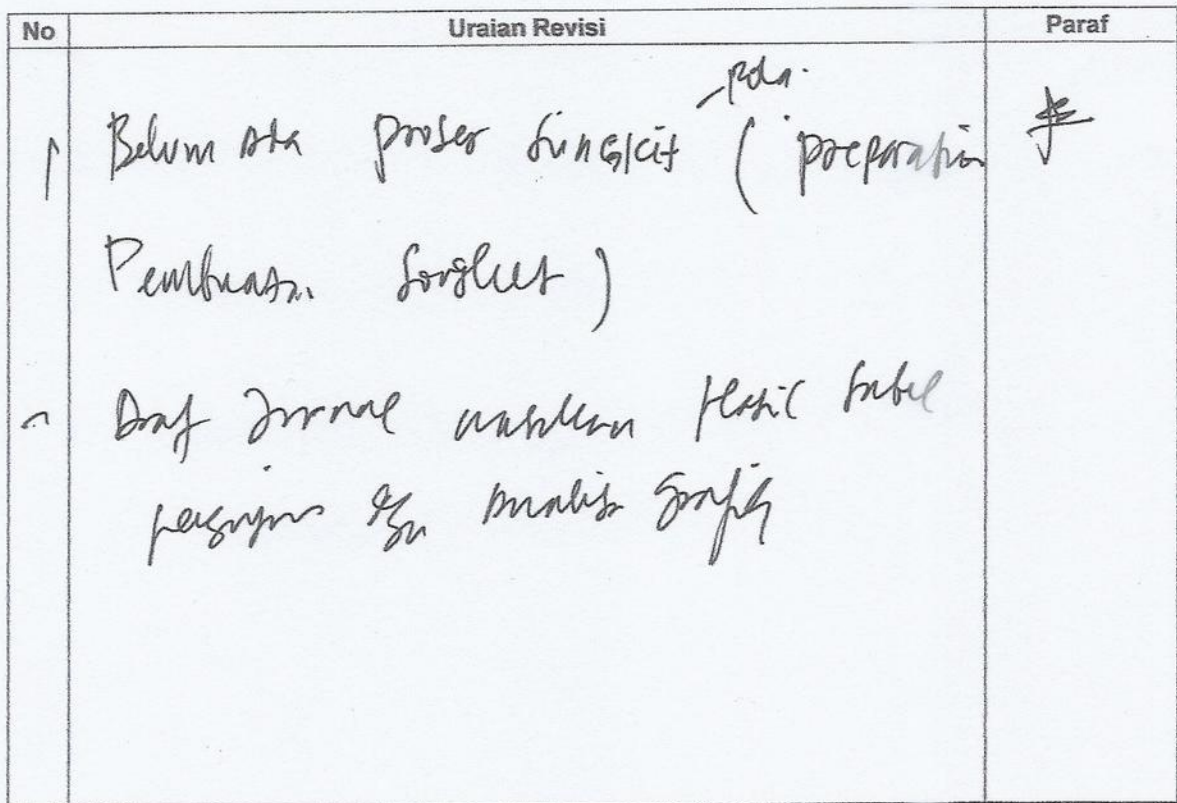 No Uraian Revisi Paraf
pola.
Belum Ada proses singkit ( preparation
Pembuatan
Draf Jurnal masukkan Hasil tabel
pengujian dgn Analisa Grafik